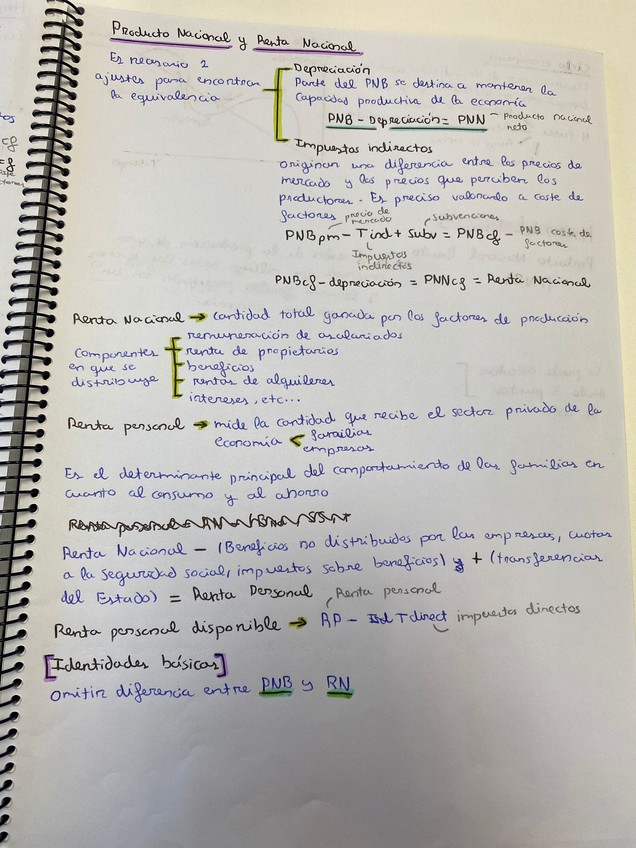 Producto Nacional y Renta Nacional
Es necesario 2
ajustes para encontrar
la equivalencia
Depreciación
Parte del PNB se destina a mantener la
capacidad productiva de la economía
PNB - Depreciación = PNN - producto nacional
neto
Impuestos indirectos
originan una diferencia entre los precios de
mercado y los precios que perciben los
productores. Es preciso valorarlo a coste de
factores
precio de
mercado
subvenciones
PNBpm - Tind + Subv = PNBcf - PNB coste de
factores
Impuestos
indirectos
PNBcf - depreciación = PNNcf = Renta Nacional
Renta Nacional → cantidad total ganada por los factores de producción
Componentes
en que se
distribuye
remuneración de asalariados
renta de propietarios
beneficios
rentas de alquileres
intereses, etc...
Renta personal → mide la cantidad que recibe el sector privado de la
economía < familias
empresas
Es el determinante principal del comportamiento de las familias en
cuanto al consumo y al ahorro
Renta Nacional - (Beneficios no distribuidos por las empresas, cuotas
a la seguridad social, impuestos sobre beneficios) + (transferencias
del Estado) = Renta Personal
Renta personal
Renta personal disponible → RP - Tdirect impuestos directos
[Identidades básicas]
Omitir diferencia entre PNB y RN